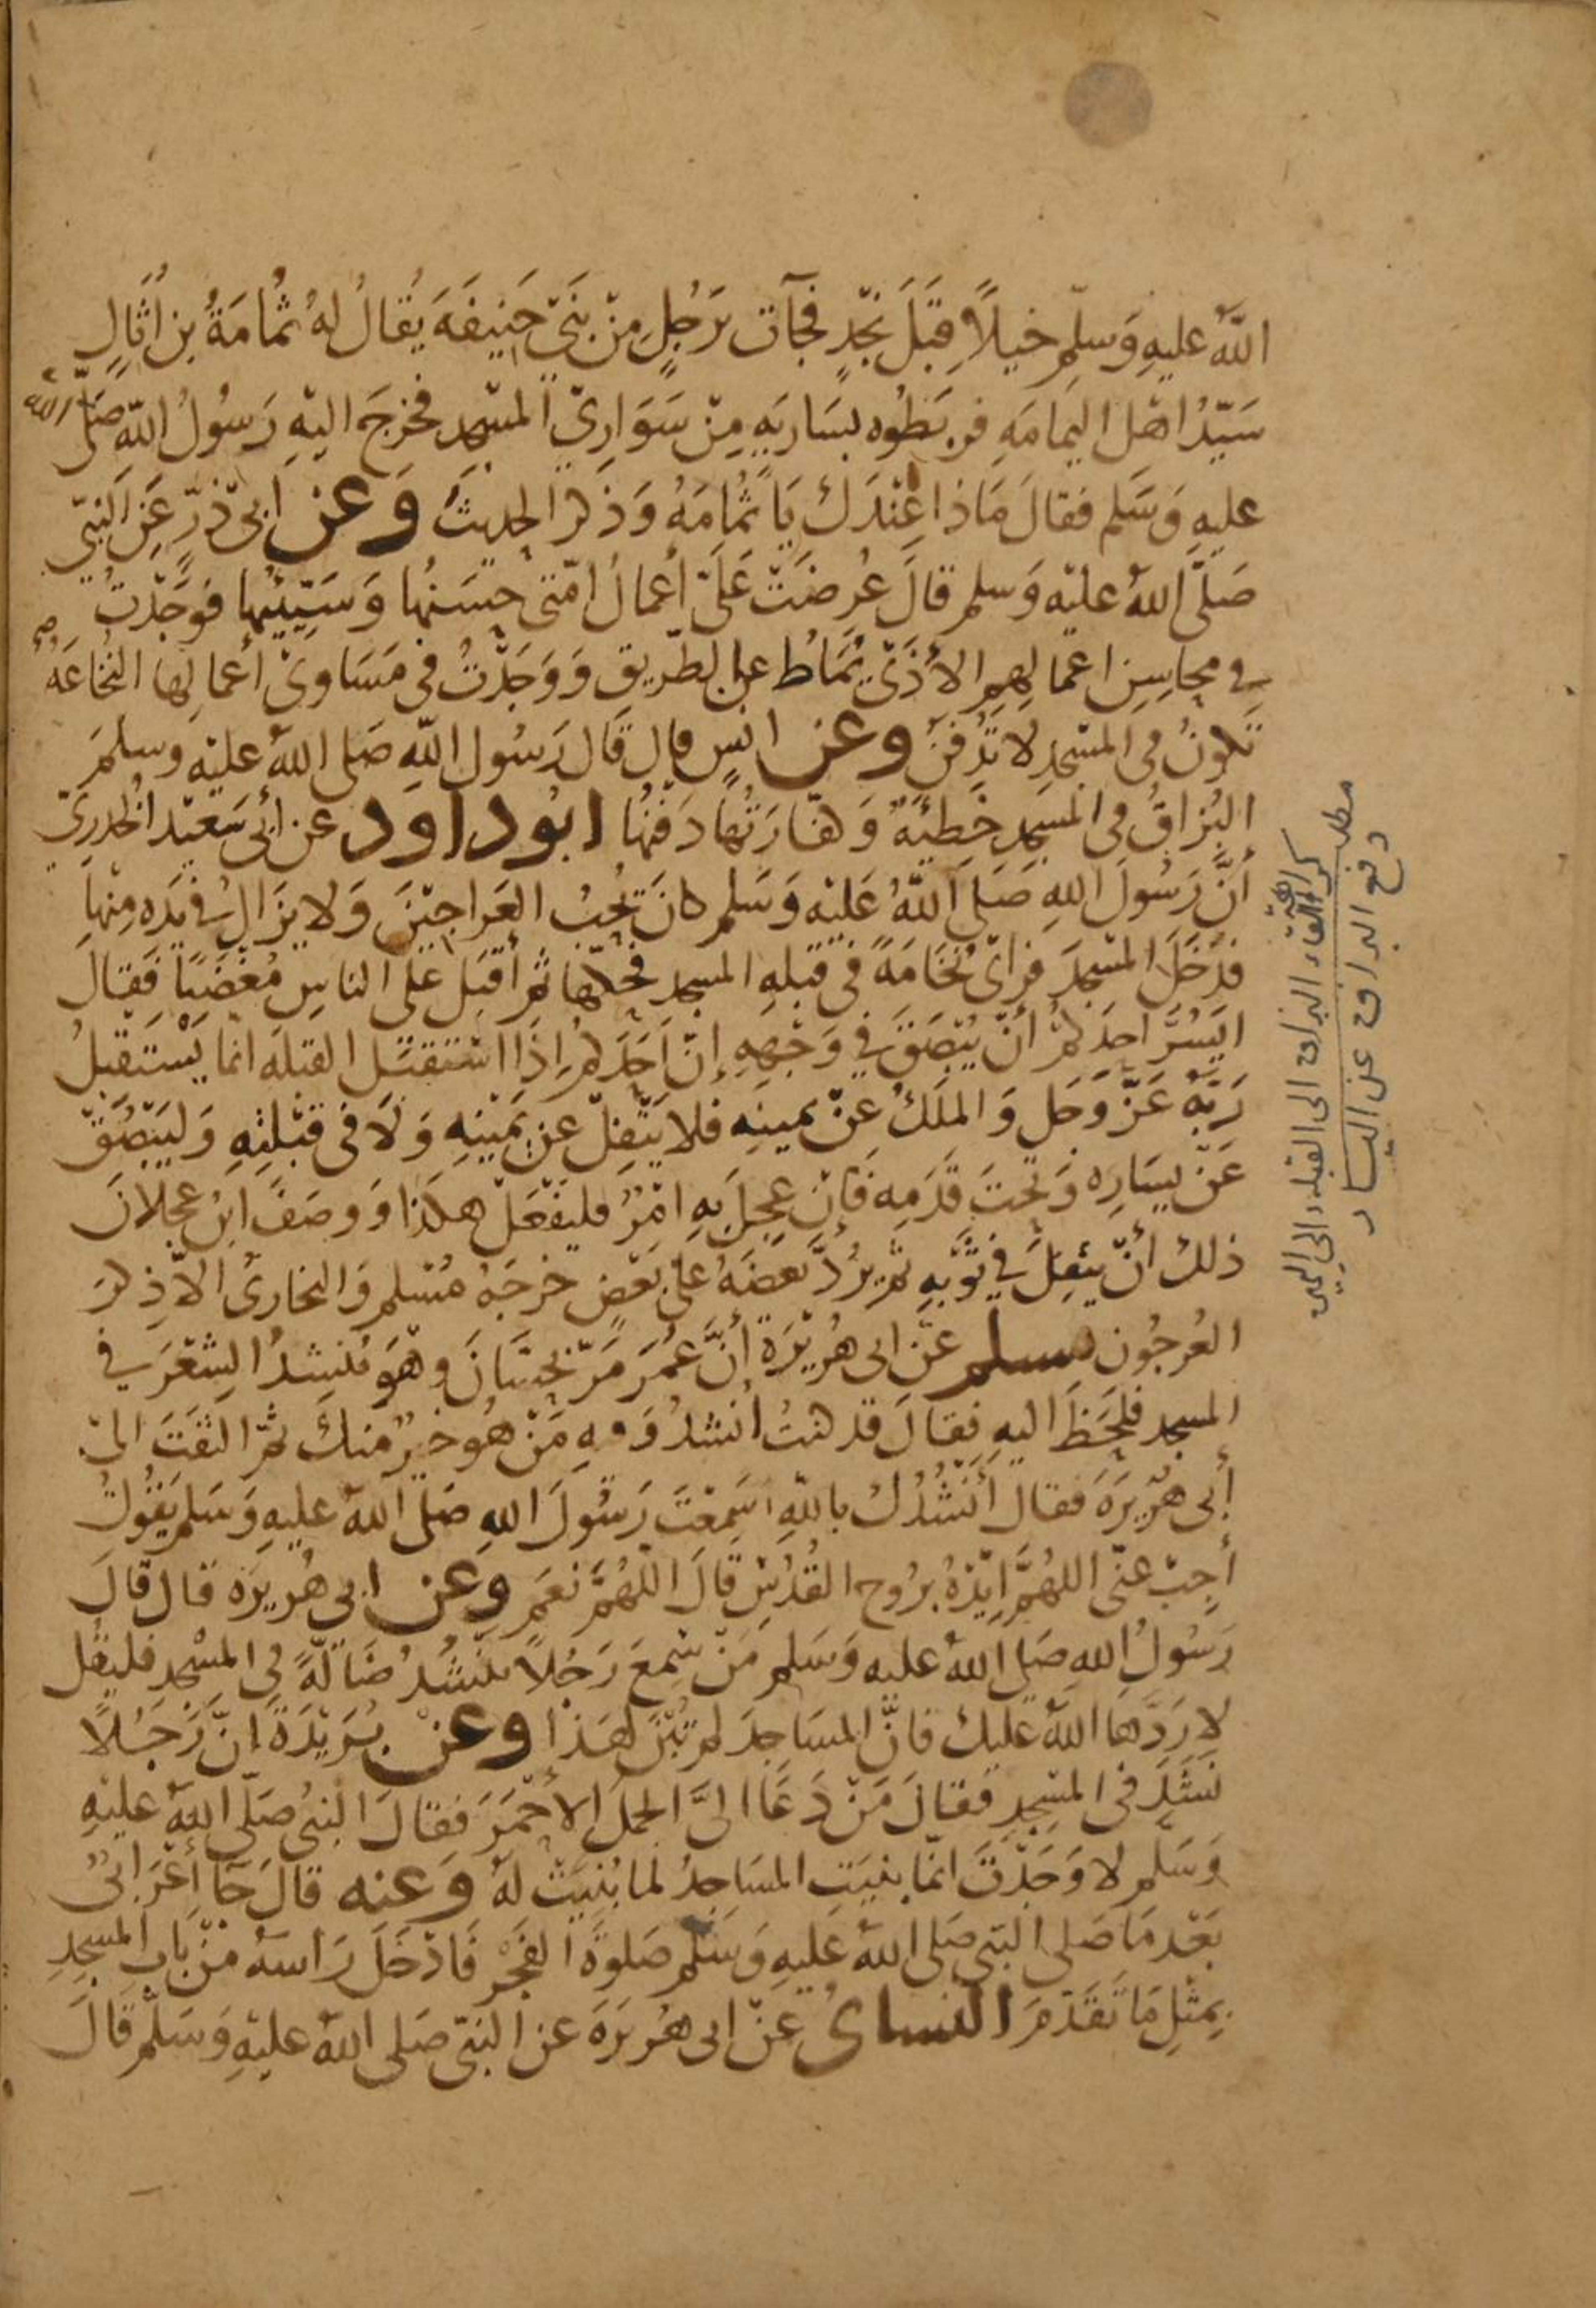 اللهُ عليهِ وَسلّم خيلاً قِبَلَ نَجْدٍ فجآت برَجُلٍ مِنْ بَنِي حَنِيفَهَ يُقالُ لهُ ثُمامَةُ بن اُثَالٍ
سَيّدُ اهْل اليمامَهِ فربَطُوه بسَاريَهٍ مِنْ سَوَارِيْ المسْجِدِ فخرجَ اليْهِ رَسُولُ اللّهِ صَلَّى الله
عليهِ وَسَلم فقالَ مَاذا عِنْدَكَ يَا ثُمَامَهُ وَذكرَ الحديثَ وَعن ابى ذَرٍّ عَنِ النبيّ
صَلَّى اللهُ عليْه وَسلم قالَ عُرضَتْ عَلَيّ أعمالُ امّتى حَسَنُها وَسَيّئُها فوَجَدْتُ
فِي محاسِنِ اعمالِهِم الأذَى يُمَاطُ عن الطّريق وَوَجَدْتُ في مَسَاوِئ أعمالِها النخُاعَهُ
تكونُ فى المسْجدِ لا تُدفَنُ وعن انسٍ قال قال رَسُول اللّهِ صَلى اللهُ عليْه وسلمَ
البُزاقُ في المسجدِ خَطِيَّةٌ وَكفّارَتُها دَفنُها ابوُ داود عن أبى سَعيْد الخُدريّ
أنّ رَسُولَ اللهِ صَلى اللهُ عَلَيْه وَسَلم كانَ يُحِبُ العَراجيْنَ وَلا يزَالُ في يَدِه مِنْهاَ
فدَخَلَ المسْجدَ فرَاى نُخَامَةً في قبْلهِ المسجد فحكّها ثم أقبَل على الناسِ مُغضَبًا فَقالَ
ايَسُرَّ احَدَكُم أنْ يُبْصَقَ في وَجْهِهِ إنّ احَدَكمُ إذَا اسْتقبَل القبلَه انما يَسْتَقبلُ
رَبّهُ عَزّ وَجَل وَالملَكُ عنْ يمينِه فلا يَتْفِلْ عن يَمْينِهِ وَلَا في قبْلتِهِ وَليَبْصُقْ
عَنْ يسَارِه وَتحتَ قدَمِه فَإنْ عَجِلَ بِهِ امْرٌ فليَفْعَلْ هكذا وَوصَفَ ابن عجلانَ
ذلك أنْ يتفِلَ في ثوْبِهِ ثم يرُدَّ بَعضَهُ على بَعْضٍ خرجَهُ مُسْلم وَالبخارىُ الا ذِكرَ
العُرجُون مسلم عنْ ابى هُريْرَة أنَّ عُمَرَ مَرّ بحَسَّانَ وهوَ يُنشِدُ الشِعْرَ في
المسجد فلَحَظَ اليهِ فقالَ قد كنتُ أنشدُ وَفيهِ مَنْ هُو خيْرٌ منكَ ثمّ التفَتَ الىَ
أبى هُرَيْرَهَ فقالَ أنْشُدُكَ باللّهِ اسَمِعْتَ رَسُولَ اللهِ صَلى اللهُ عليهِ وَسَلم يَقوُلُ
أجِبْ عنّى اللهُمَّ ايّدْهُ برُوح القُدُسِ قالَ اللّهُمَّ نعَم وعن ابى هُريرَه قال قالَ
رَسُولُ اللهِ صَلى اللهُ عليه وَسَلم مَنْ سَمِعَ رَجُلاً يَنْشُدُ ضَالّةً في المسْجدِ فليقُل
لا رَدَّها اللهُ عَليك فانّ المسَاجِدَ لم تُبْنَ لهَذا وعنْ بُرَيْدَةَ انّ رَجُلاً
نَشَدَ في المسْجِدِ فقالَ مَنْ دَعَا الىَ الجمَل الأحْمَرَ فقالَ النبيُ صَلّى اللهُ عليْهِ
وَسَلم لا وَجَدْتَ انما بُنيَتِ المسَاجِدُ لما بُنيَتْ لَهُ وَعنه قالَ جَا أعْرَابىٌ
بَعْدَ مَا صَلى النبي صَلى اللهُ عَليهِ وَسَلم صَلوةَ الفَجْر فَادْخَلَ رَأسَهُ منْ بَابِ المسْجِدِ
بِمثْلِ مَا تَقَدّمَ النساىُ عَنْ ابى هُريرَهَ عن النبيّ صَلى اللهُ عليْهِ وَسَلم قالَ
مطلب
كراهية القاء البزاق الى القبلة والى اليمين
دفع البزاق عن اليسار